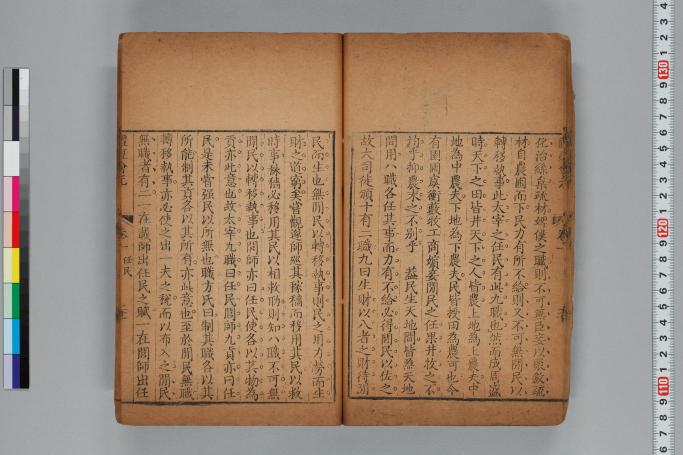 化治絲枲疏材媵僕之職則不可無臣妾以聚斂疏
材自農圃而下民力有所不給則又不可無閒民以
轉移執事此太宰之任民有此九職也然而成周盛
時天下之田皆井天下之人皆農上地為上農夫中
地為中農夫下地為下農夫民皆授田為農可也今
有園圃虞衡藪牧工商嬪妾閒民之任果井牧之不
均乎抑農末之不別乎 蓋民生天地間皆為天地
間用八職各任其事而力有不給必得閒民以佐之
故大司徒頒十有二職九曰生財以八者之財待
民而生也無閒民以轉移執事則民之用力勞而生
財之道窮矣嘗觀遂師經其稼穡而移用其民以救
時事稼穡必移用其民以相救助則知八職不可無
閒民以轉移執事也閭師亦曰任民使各以其物為
貢亦此意也故太宰九職曰任民閭師九貢亦曰任
民是未嘗强民以所無也職方氏曰制其職各以其
所能制其貢各以其所有亦此意也至於閒民無職
轉移執事亦必使之出一夫之稅而以布入之閒民
無職者有二一在載師出任民之賦一在閭師出任
任民
110
120
130